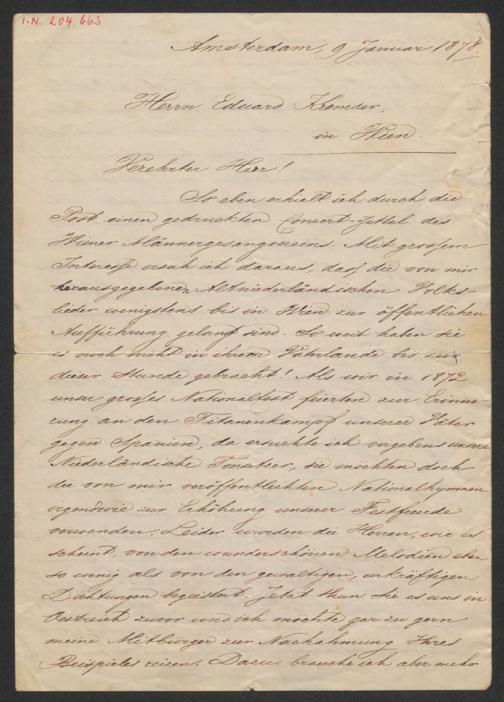 I.N. 204.663
Amsterdam, 9 Januar 1878.
Herrn Eduard Kremser.
in Wien.
Verehrter Herr!
So eben erhielt ich durch die
Post einen gedruckten Concert-Zettel des
Wiener Männergesangvereins. Mit grossem
Interesse ersah ich daraus, dass die von mir
herausgegebenen Altniederländischen Volks
lieder wenigstens bis in Wien zur öffentlichen
Aufführung gelangt sind. So weit haben sie
es noch nicht in ihrem Vaterlande bis auf
dieser Stunde gebracht! Als wir in 1872
unser grosses Nationalfest feierten zur Erinne-
rung an den Titanenkampf unserer Väter
gegen Spanien, da ersuchte ich vergebens unsere
Niederländische Tonsetzer, sie möchten doch
die von mir veröffentlichten Nationalhymnen
irgendwie zur Erhöhung unserer Festfreude
verwenden. Leider wurden die Herren, wie es
scheint, von den wunderschönen Melodien eben
so wenig als von den gewaltigen, urkräftigen
Dichtungen begeistert. Jetzt thun Sie es uns in
Oestreich zuvor und ich möchte gar zu gern
meine Mitbürger zur Nachahmung Ihres
Beispieles reizen. Dazu brauche ich aber mehr